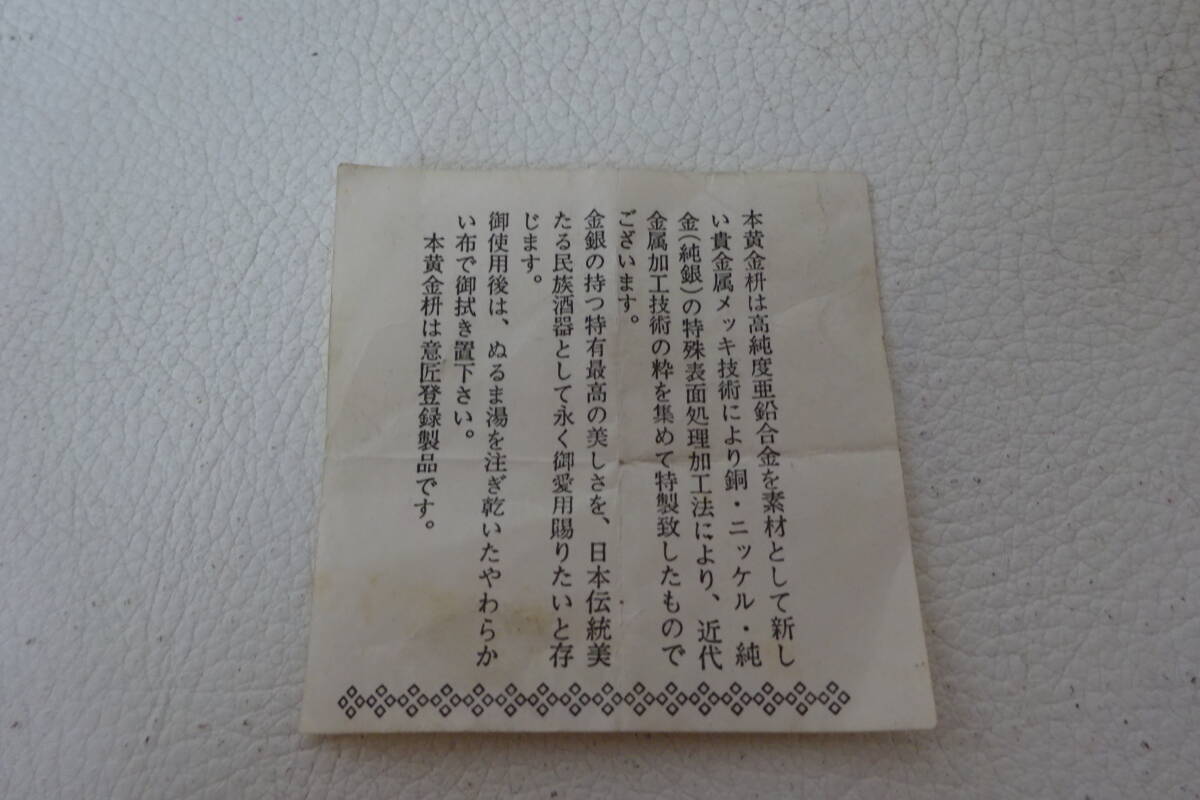 本黄金枡は高純度亜鉛合金を素材として新し
い貴金属メッキ技術により銅・ニッケル・純
金(純銀)の特殊表面処理加工法により、近代
金属加工技術の粋を集めて特製致したもので
ございます。
金銀の持つ特有最高の美しさを、日本伝統美
たる民族酒器として永く御愛用賜りたいと存
じます。
御使用後は、ぬるま湯を注ぎ乾いたやわらか
い布で御拭き置下さい。
本黄金枡は意匠登録製品です。